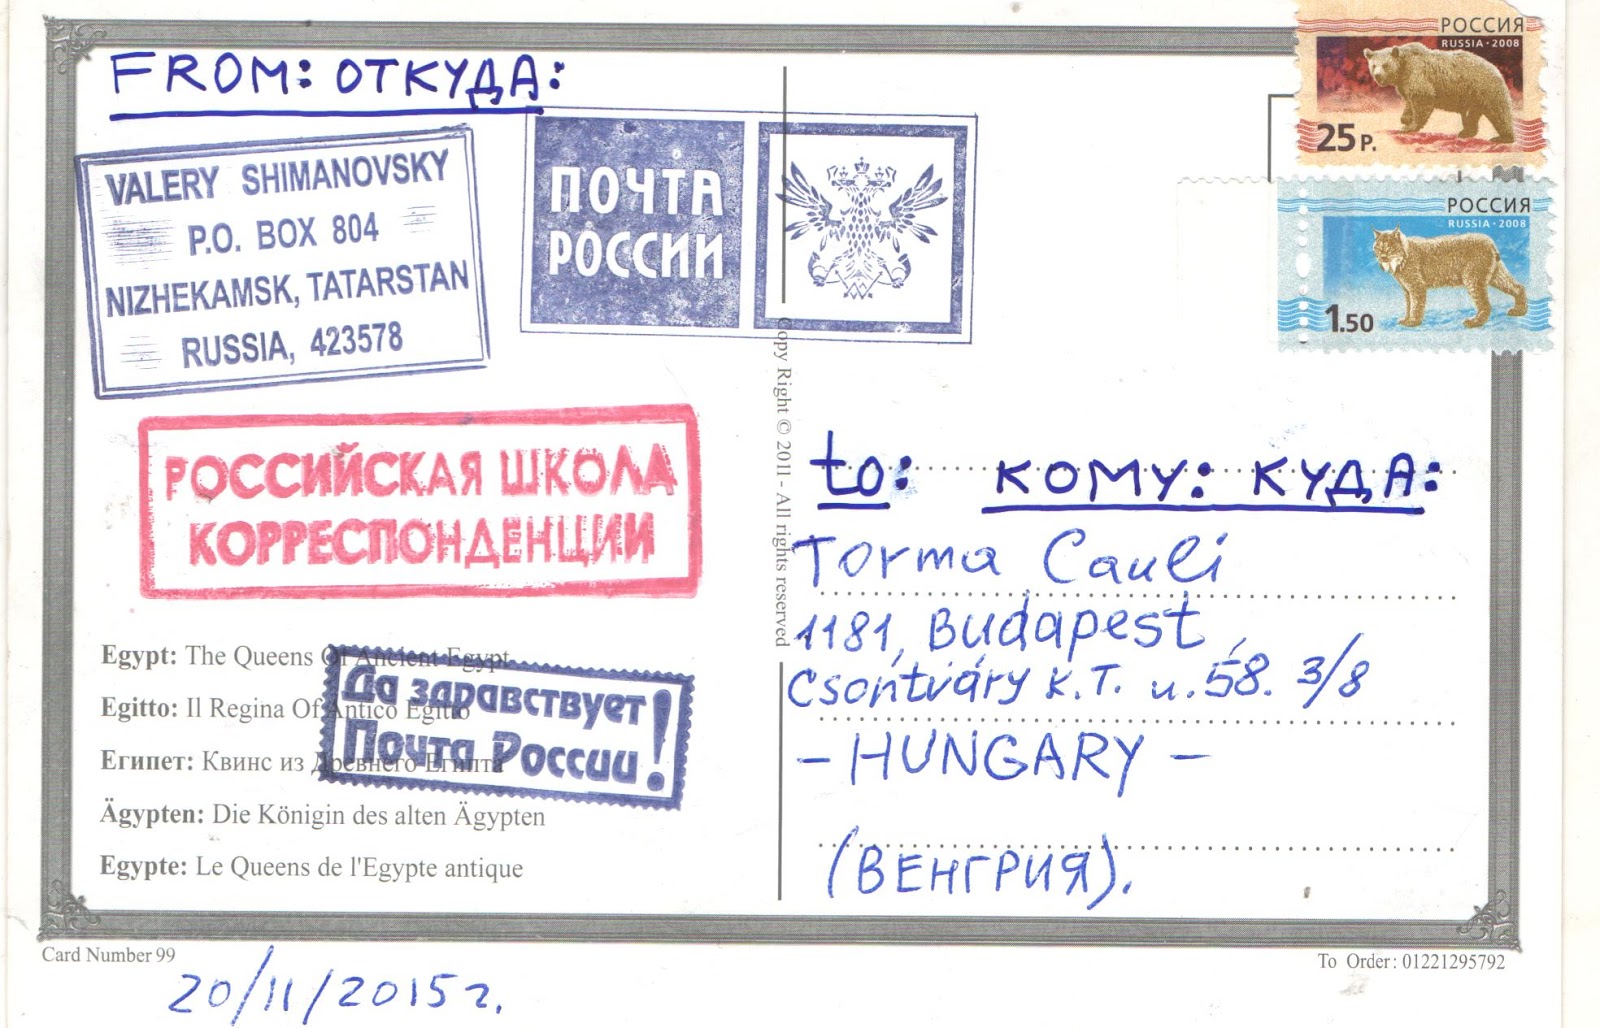 FROM: ОТКУДА:
VALERY SHIMANOVSKY
P.O. BOX 804
NIZHEKAMSK, TATARSTAN
RUSSIA, 423578
ПОЧТА
РОССИИ
РОССИЯ
RUSSIA · 2008
25 Р.
РОССИЯ
RUSSIA · 2008
1.50
РОССИЙСКАЯ ШКОЛА
КОРРЕСПОНДЕНЦИИ
Egypt: The Queens Of Ancient Egypt
Egitto: Il Regina Of Antico Egitto
Египет: Квинс из Древнего Египта
Ägypten: Die Königin des alten Ägypten
Egypte: Le Queens de l'Egypte antique
Да здравствует
Почта России!
Copy Right © 2011 - All rights reserved
to: КОМУ: КУДА:
Torma Cauli
1181, Budapest
Csontváry K.T. u. 58. 3/8
- HUNGARY -
(ВЕНГРИЯ).
Card Number 99
To Order: 01221295792
20/11/2015 г.